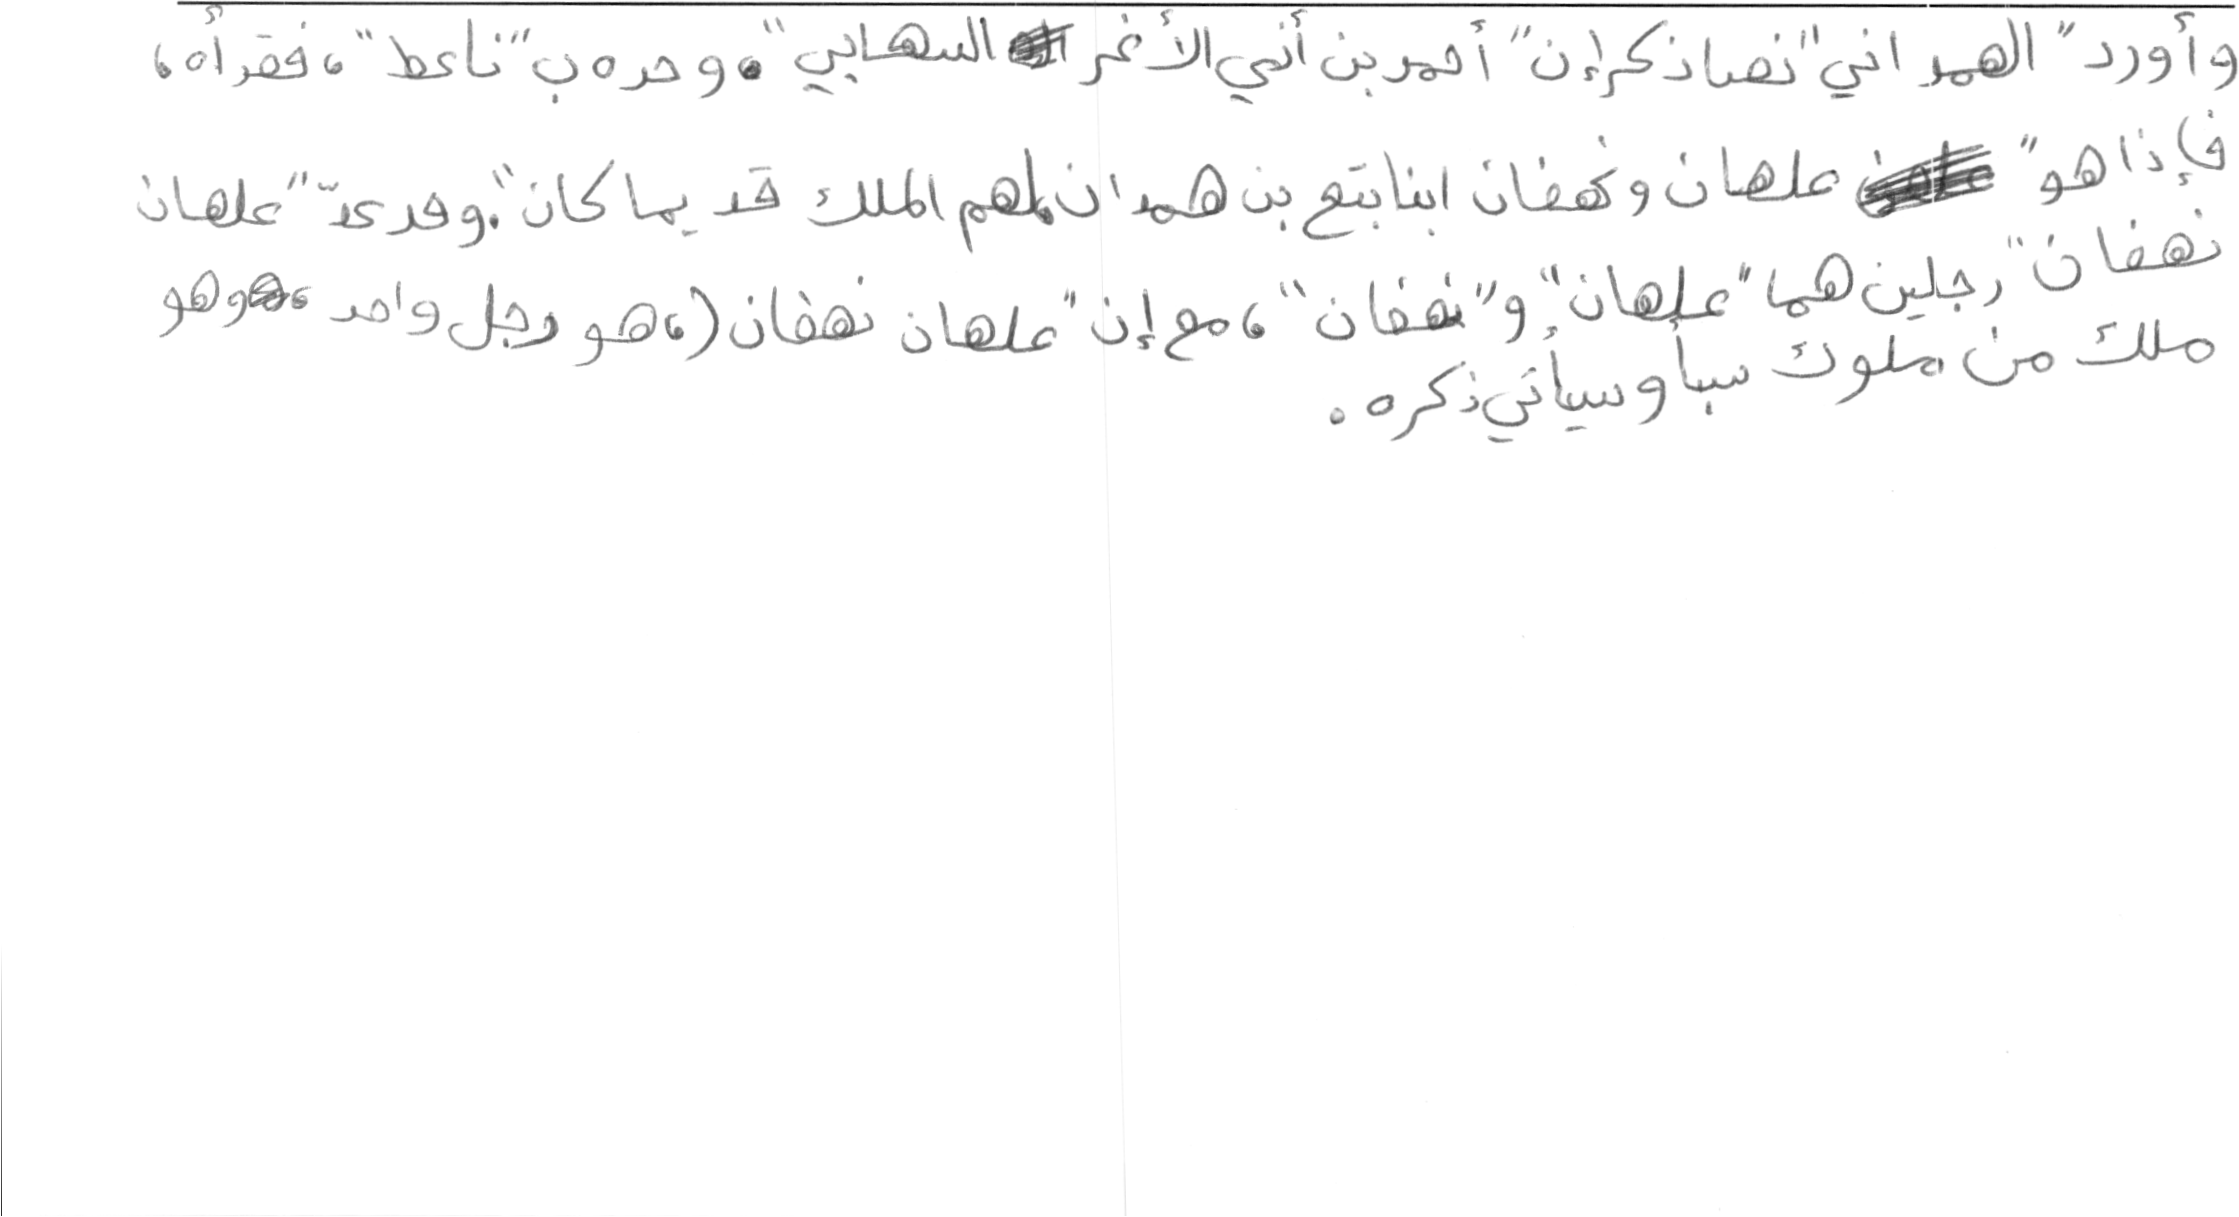 وأورد "الهمداني" نصا ذكر إن "أحمد بن أبي الأغر الشهابي"، وحده ب"ناعط"، فقرأه،
فإذا هو "علهان ونهفان ابنا بتع بن همدان لهم الملك قديما كان". وقد عدّ "علهان
نهفان" رجلين هما "علهان" و"نهفان"، مع إن "علهان نهفان (، هو رجل واحد، وهو
ملك من ملوك سبأ وسيأتي ذكره.